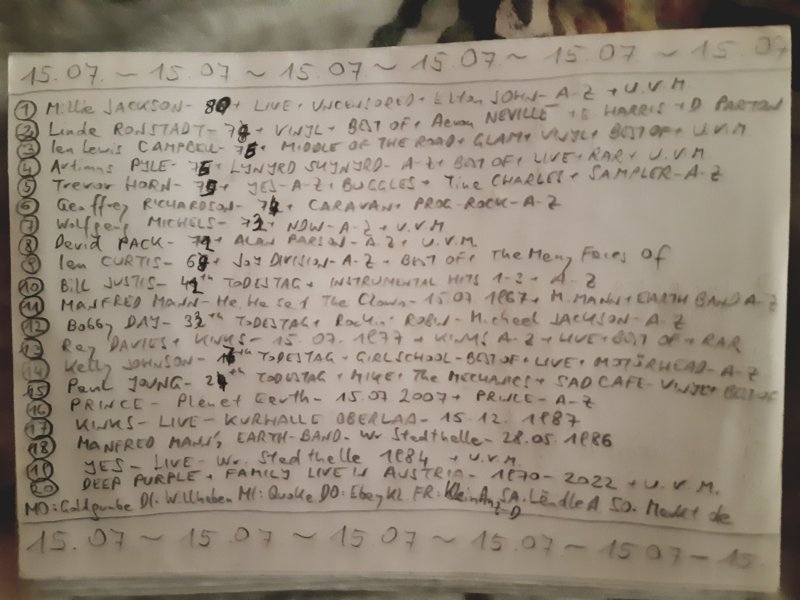 15.07. ~ 15.07 ~ 15.07 ~ 15.07 ~ 15.07 ~ 15.07
① Millie JACKSON - 80 + LIVE + UNCENSORED + Elton JOHN - A-Z + U.V.M.
② Linda RONSTADT - 78 + VINYL + BEST OF + Aaron NEVILLE + E HARRIS + D PARTON
③ Ian Lewis CAMPBELL - 76 + MIDDLE OF THE ROAD + GLAM + VINYL + BEST OF + U.V.M
④ Artimus PYLE - 76 + LYNYRD SKYNYRD - A-Z + BEST OF + LIVE + RAR + U.V.M
⑤ Trevor HORN - 75 + YES - A-Z + BUGGLES + Tina CHARLES + SAMPLER - A-Z
⑥ Geoffrey RICHARDSON - 74 + CARAVAN + PROG-ROCK - A-Z
⑦ Wolfgang MICHELS - 73 + NDW - A-Z + U.V.M
⑧ David PACK - 72 + ALAN PARSON - A-Z + U.V.M.
⑨ Ian CURTIS - 68 + JOY DIVISION - A-Z + BEST OF + The Many Faces of
⑩ BILL JUSTIS - 42th TODESTAG + INSTRUMENTAL HITS 1-3 + A-Z
⑪ MANFRED MANN - Ha Ha Said The Clown - 15.07 1967 + M. MANN + EARTH BAND A-Z
⑫ Bobby DAY - 34th TODESTAG + Rockin' ROBIN - Michael JACKSON - A-Z
⑬ Ray DAVIES + KINKS - 15.07.1977 + KINKS A-Z + LIVE + BEST OF + RAR
⑭ Kelly JOHNSON - 17th TODESTAG + GIRLSCHOOL - BEST OF + LIVE + MOTÖRHEAD - A-Z
⑮ Paul YOUNG - 24th TODESTAG + MIKE + The MECHANICS + SAD CAFE - VINYL + BEST OF
⑯ PRINCE - Planet Earth - 15.07 2007 + PRINCE - A-Z
⑰ KINKS - LIVE - KURHALLE OBERLAA - 15.12. 1987
⑱ MANFRED MANN'S EARTH-BAND - Wr Stadthalle - 28.05 1986
⑲ YES - LIVE - Wr. Stadthalle 1984 + U.V.M.
⑳ DEEP PURPLE + FAMILY LIVE IN AUSTRIA - 1970 - 2022 + U.V.M.
MO: Goldgrube DI: Willhaben MI: Quoka DO: Ebay Kl. FR: Klein Anz-D SA: Ländle A SO: Markt de
15.07 ~ 15.07 ~ 15.07 ~ 15.07 ~ 15.07 - 15